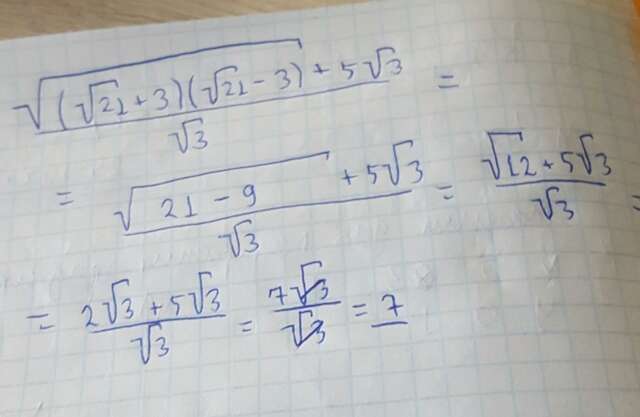 (√((√21+3)(√21-3)) + 5√3)/√3 =
= (√(21-9) + 5√3)/√3 = (√12 + 5√3)/√3 =
= (2√3 + 5√3)/√3 = 7√3/√3 = 7